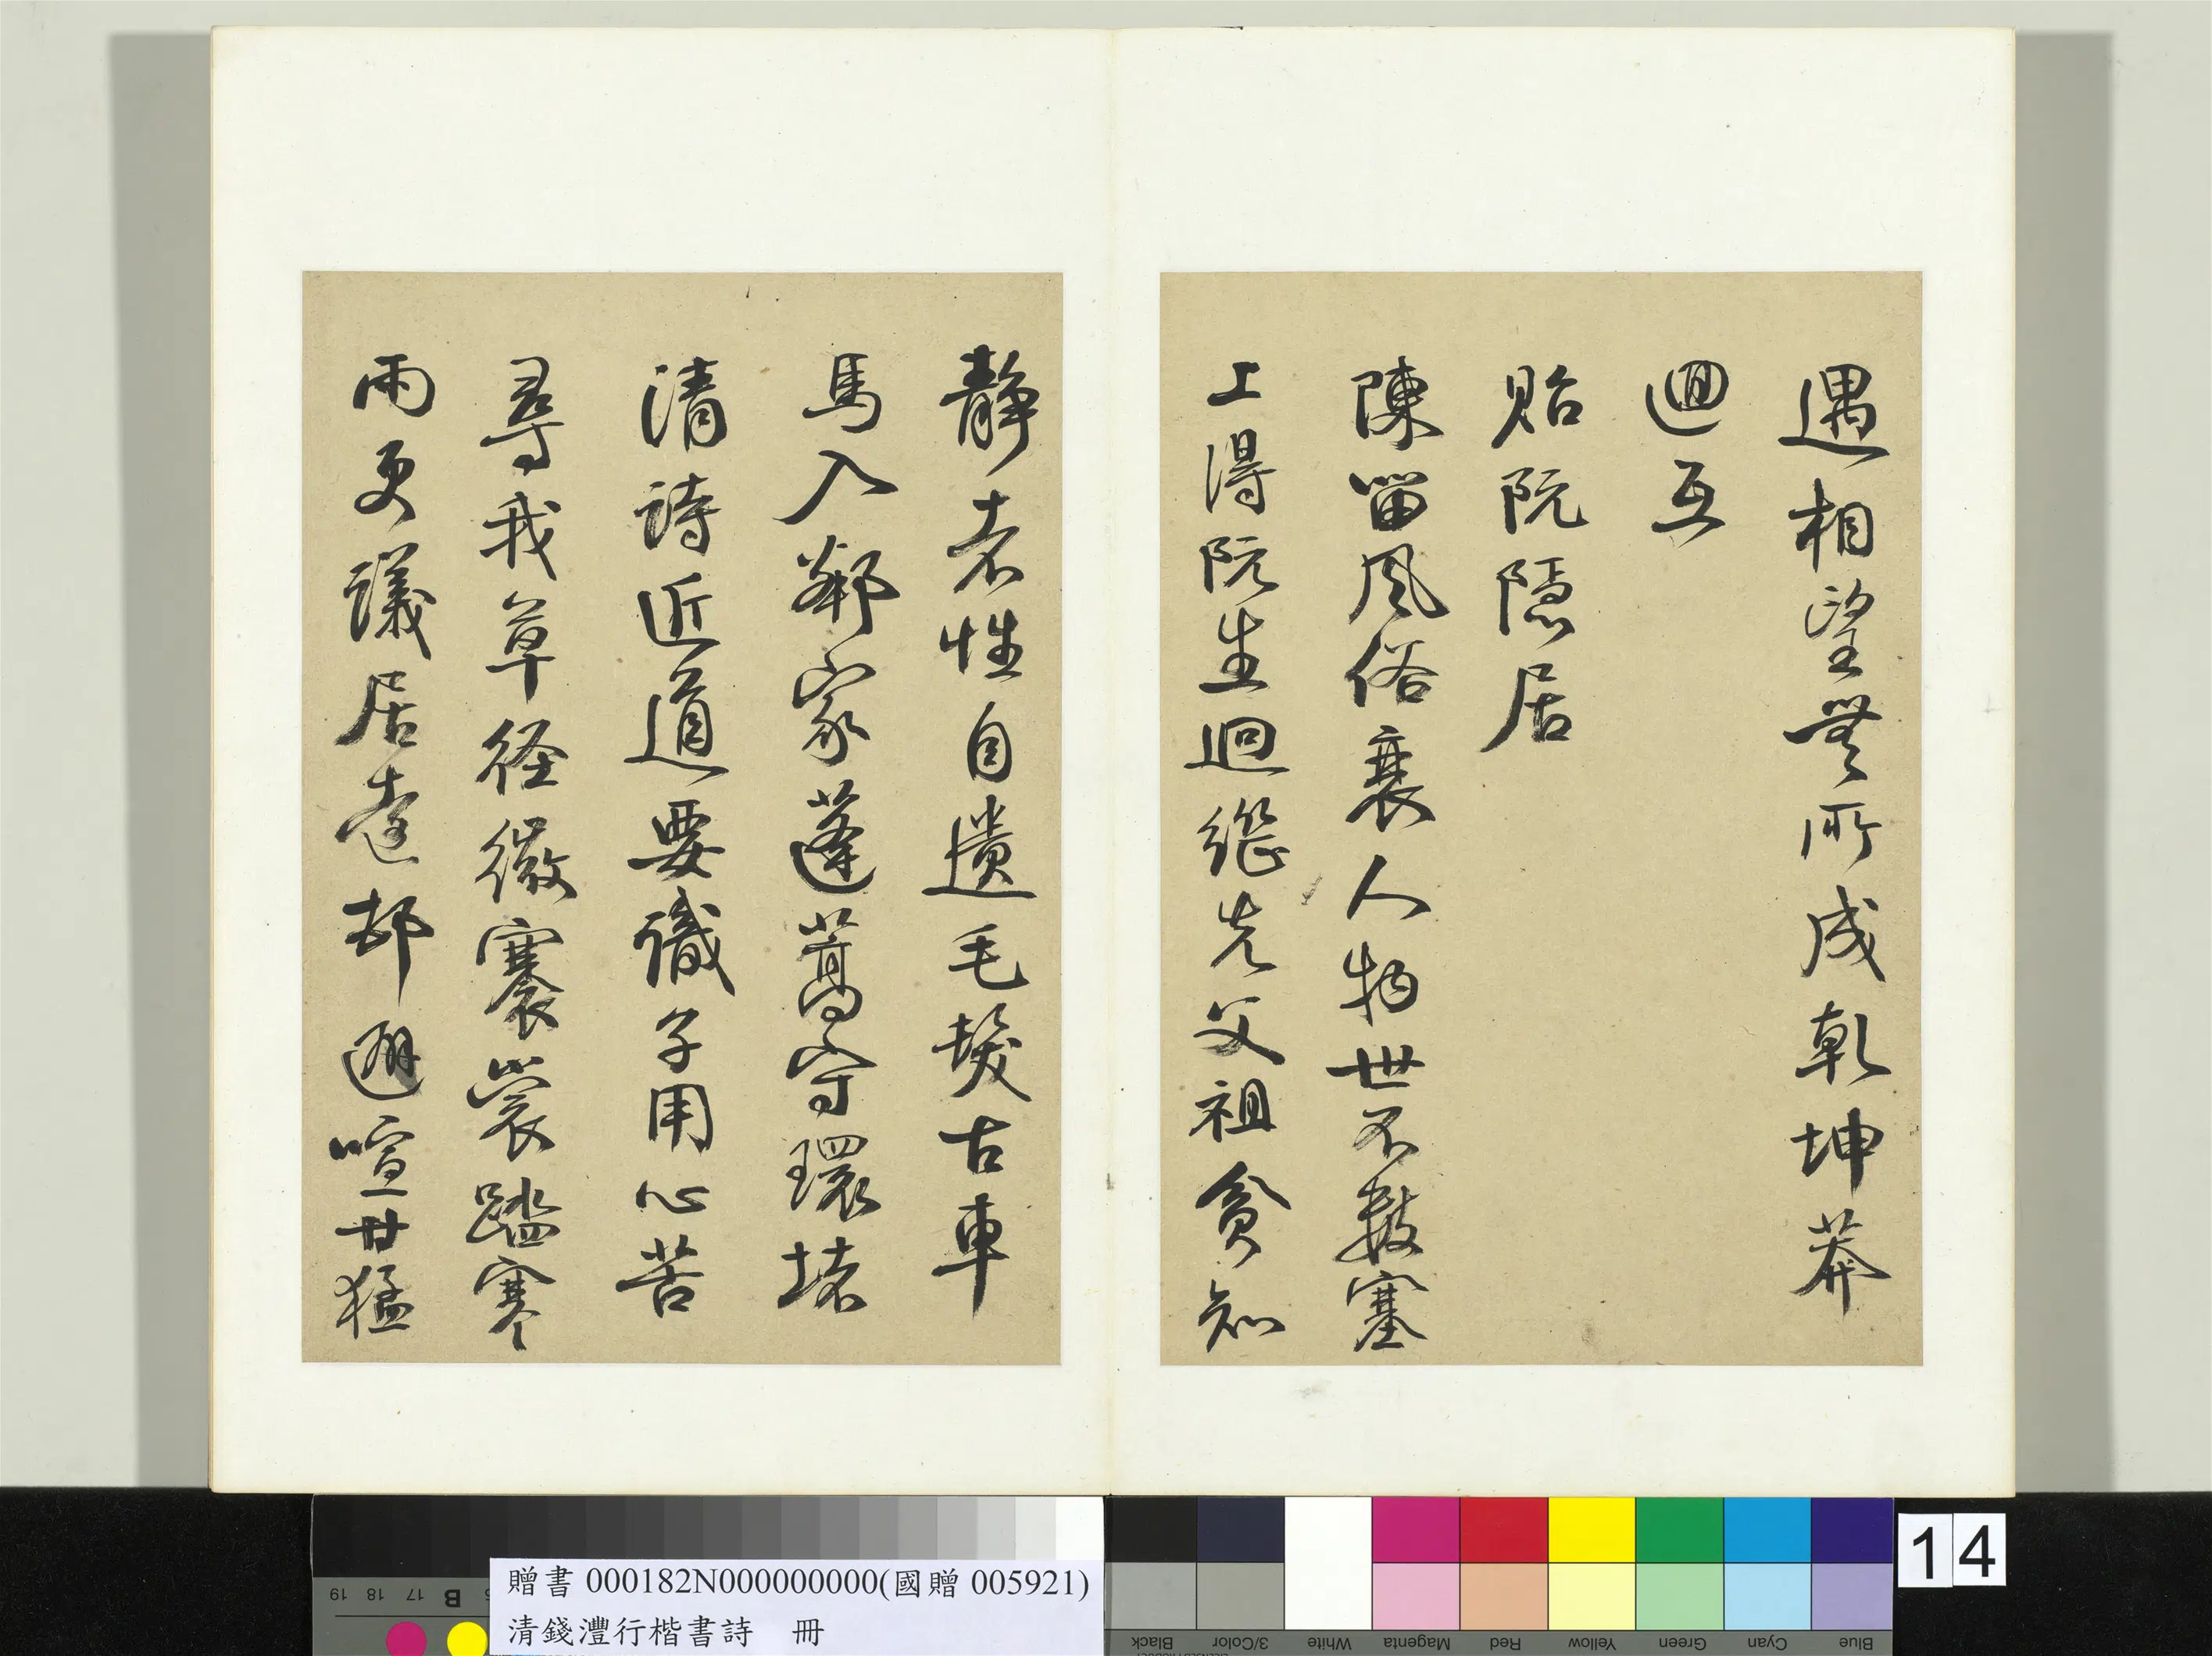 遇相望無所成乾坤莽
迴互
貽阮隱居
陳留風俗衰人物世不數塞
上得阮生迥繼先父祖貧知
靜者性自遺毛髮古車
馬入鄰家蓬蒿守環堵
清詩近道要識子用心苦
尋我草徑微褰裳踏寒
雨更議居遠邨避喧甘猛
14
贈書 000182N000000000(國贈 005921)
清錢灃行楷書詩　冊
19 18 17 B
Black 3/Color White Magenta Red Yellow Green Cyan Blue